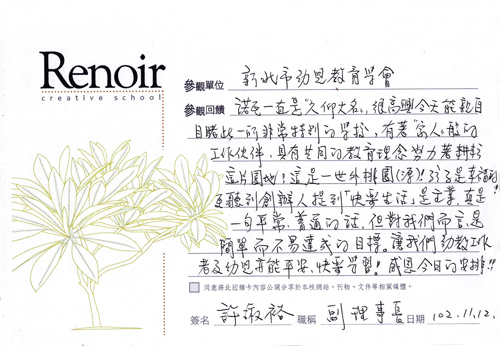 Renoir
creative school
參觀單位 新北市幼兒教育學會
參觀回饋 諾瓦一直是"久仰大名",很高興今天能親自
目睹此一所非常特別的學校,有著"富人"般的
工作伙伴,具有共同的教育理念努力著耕耘
這片園地!這是一世外桃園(源)!
聽到創辦人提到"快樂生活"是主業,真是
一句平常、普通的話,但對我們而言是
簡單而不易達成的目標。讓我們幼教工作
者及幼兒亦能平安、快樂學習!感恩今日的安排!!
同意將此回饋卡內容公開分享於本校網站、刊物、文件等相關媒體。
簽名 許淑裕 職稱 副理事長 日期 102.11.12.